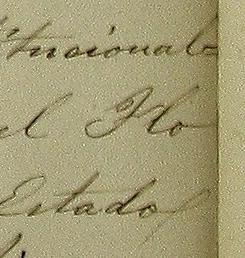 tucional
el Ho
Estado